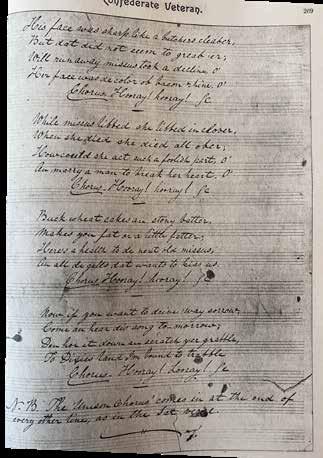 Confederate Veteran.
269
His face was sharp like a butchers cleaber,
But dat did not seem to greab er;
Will run away missus took a decline, O'
Her face was de color ob bacon rhine, O'
Chorus. Hooray! hooray! &c
While missus libbed she libbed in clover,
When she died she died all ober;
How could she act such a foolish part, O'
An marry a man to break her heart, O'
Chorus. Hooray! hooray! &c
Buck wheat cakes an stony batter,
Makes you fat or a little fatter;
Heres a health to de next old missus,
An all de gals dat wants to kiss us.
Chorus. Hooray! hooray! &c
Now if you want to drive 'way sorrow,
Come an hear dis song to-morrow;
Den hoe it down an scratch yer grabble,
To Dixies land I'm bound to trabble
Chorus. Hooray! hooray! &c
N. B. The 'Unison Chorus' comes in at the end of
every other line, as in the 1st verse.